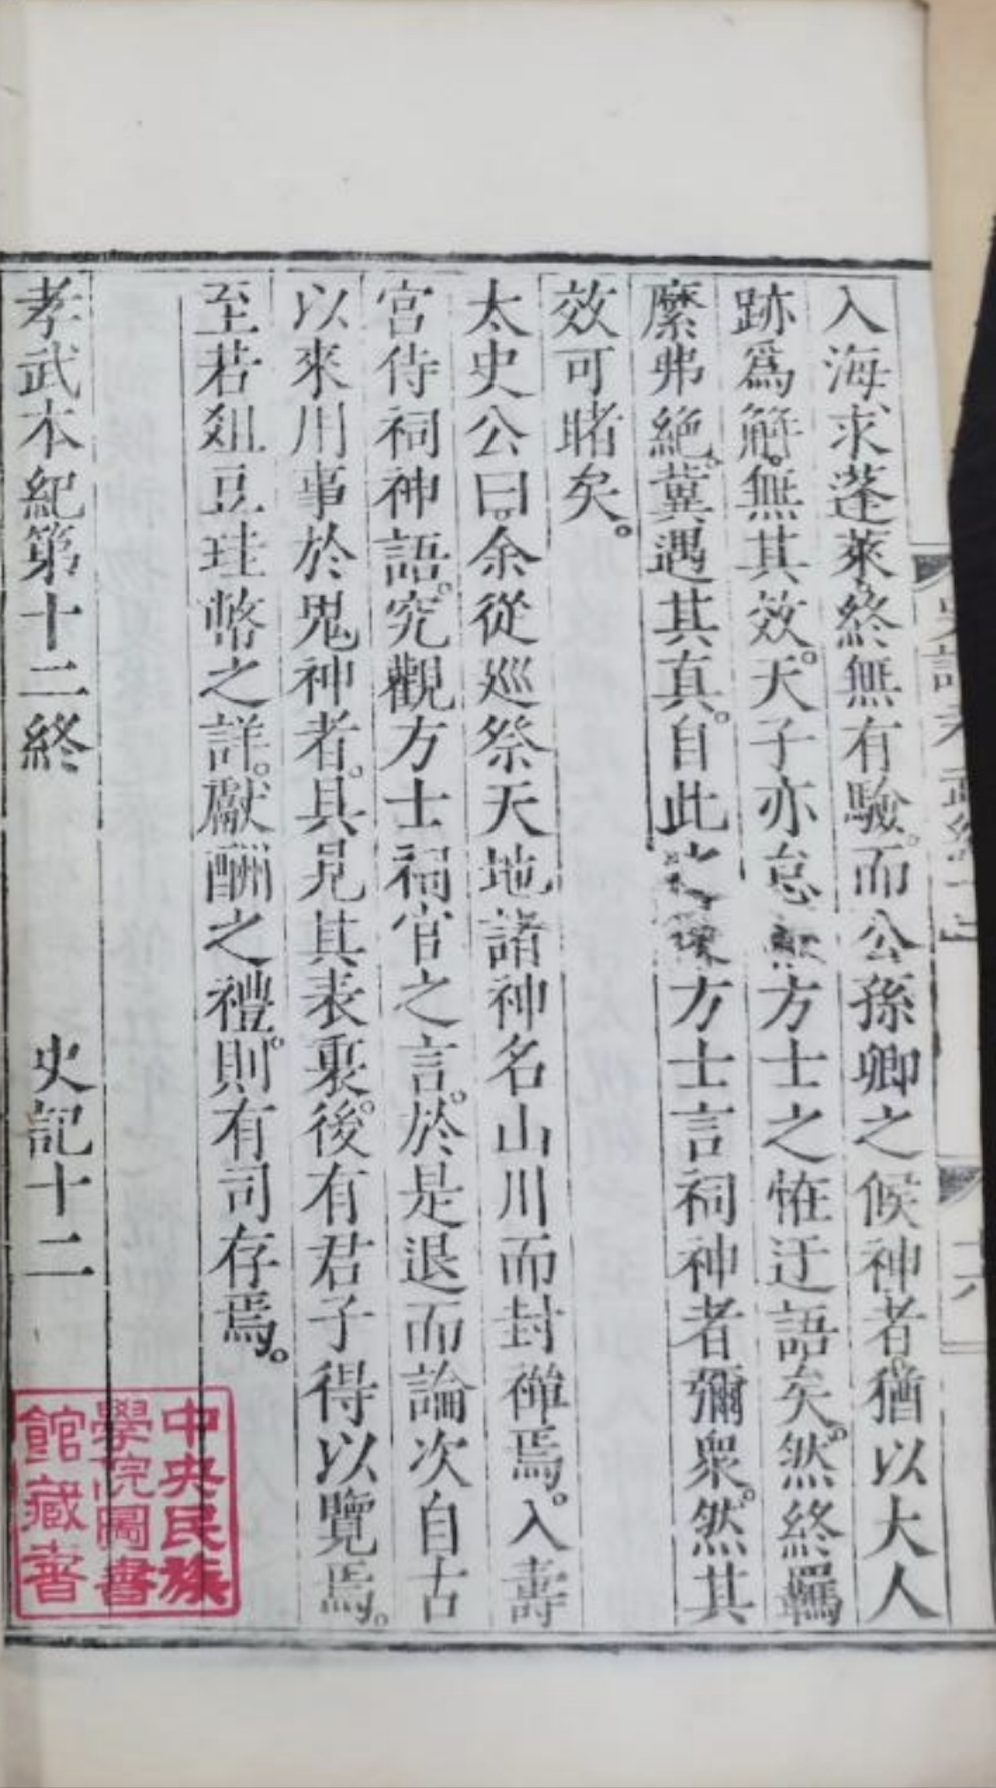 入海求蓬萊終無有驗。而公孫卿之候神者猶以大人
跡爲解。無其效。天子亦怠厭方士之恠迂語矣。然終羈
縻弗絕。冀遇其真。自此之後方士言祠神者彌衆。然其
效可睹矣。
太史公曰。余從巡祭天地諸神名山川而封禪焉。入壽
宮侍祠神語。究觀方士祠官之言。於是退而論次自古
以來用事於鬼神者。具見其表裏。後有君子得以覽焉。
至若俎豆珪幣之詳。獻酬之禮。則有司存焉。
孝武本紀第十二終 史記十二
中央民族
學院圖書
館藏書